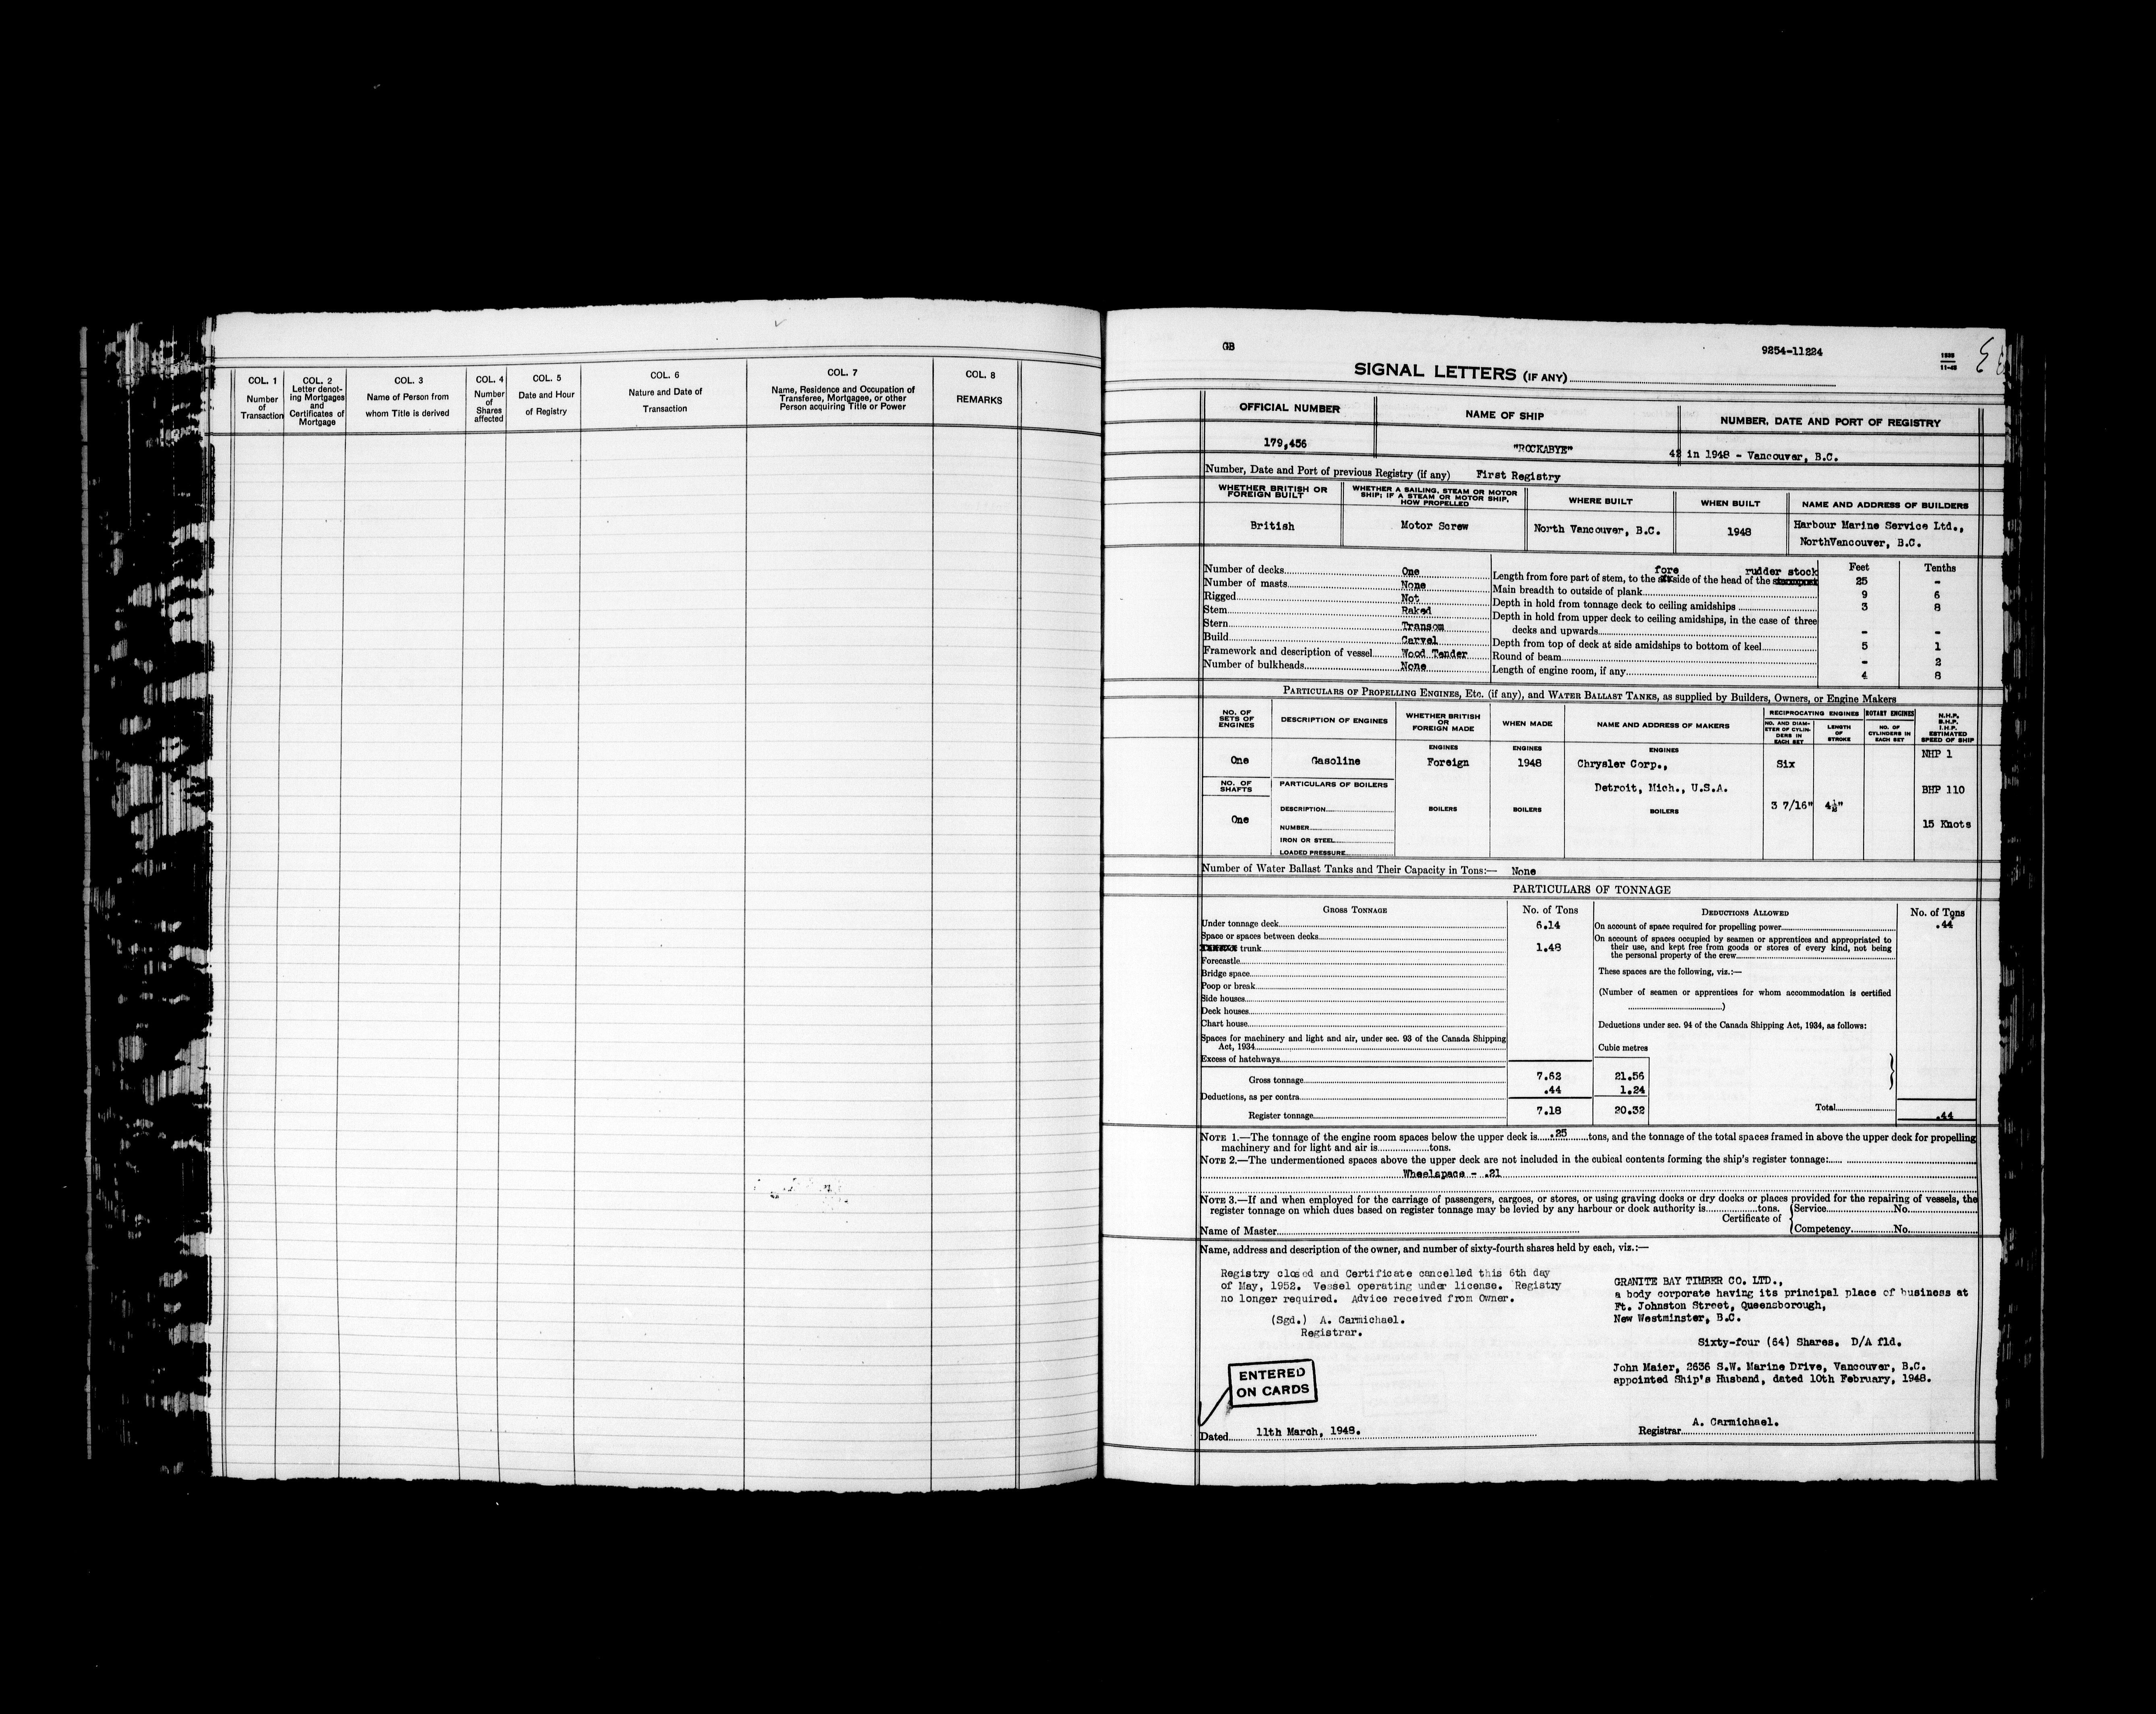 COL. 1
Number
of
Transaction
COL. 2
Letter denot-
ing Mortgages
and
Certificates of
Mortgage
COL. 3
Name of Person from
whom Title is derived
COL. 4
Number
of
Shares
affected
COL. 5
Date and Hour
of Registry
COL. 6
Nature and Date of
Transaction
COL. 7
Name, Residence and Occupation of
Transferee, Mortgagee, or other
Person acquiring Title or Power
COL. 8
REMARKS
GB
9254-11224
SIGNAL LETTERS (IF ANY)
OFFICIAL NUMBER
NAME OF SHIP
NUMBER, DATE AND PORT OF REGISTRY
179,456
"ROCKABYE"
in 1948 - Vancouver, B.C.
Number, Date and Port of previous Registry (if any) First Registry
WHETHER BRITISH OR
FOREIGN BUILT
WHETHER A SAILING, STEAM OR MOTOR
SHIP; IF A STEAM OR MOTOR SHIP,
HOW PROPELLED
WHERE BUILT
WHEN BUILT
NAME AND ADDRESS OF BUILDERS
British
Motor Screw
North Vancouver, B.C.
1948
Harbour Marine Service Ltd.,
NorthVancouver, B.C.
Number of decks One
Number of masts None
Rigged Not
Stem Raked
Stern Transom
Build Carvel
Framework and description of vessel Wood Tender
Number of bulkheads None
Feet Tenths
fore rudder stock
Length from fore part of stem, to the side of the head of the 25 -
Main breadth to outside of plank 9 6
Depth in hold from tonnage deck to ceiling amidships 3 8
Depth in hold from upper deck to ceiling amidships, in the case of three
decks and upwards - -
Depth from top of deck at side amidships to bottom of keel 5 1
Round of beam - 2
Length of engine room, if any 4 8
PARTICULARS OF PROPELLING ENGINES, ETC. (if any), and WATER BALLAST TANKS, as supplied by Builders, Owners, or Engine Makers
NO. OF
SETS OF
ENGINES
DESCRIPTION OF ENGINES
WHETHER BRITISH
OR
FOREIGN MADE
WHEN MADE
NAME AND ADDRESS OF MAKERS
RECIPROCATING ENGINES
NO. AND DIAM-
ETER OF CYLIN-
DERS IN
EACH SET
LENGTH
OF
STROKE
ROTARY ENGINES
NO. OF
CYLINDERS IN
EACH SET
N.H.P.
B.H.P.
I.H.P.
ESTIMATED
SPEED OF SHIP
ENGINES
ENGINES
ENGINES
NHP 1
One
Gasoline
Foreign
1948
Chrysler Corp.,
Six
NO. OF
SHAFTS
PARTICULARS OF BOILERS
Detroit, Mich., U.S.A.
BHP 110
One
DESCRIPTION
BOILERS
BOILERS
BOILERS
3 7/16"
15 Knots
NUMBER
IRON OR STEEL
LOADED PRESSURE
Number of Water Ballast Tanks and Their Capacity in Tons:— None
PARTICULARS OF TONNAGE
GROSS TONNAGE
No. of Tons
DEDUCTIONS ALLOWED
No. of Tons
Under tonnage deck 6.14
Space or spaces between decks
trunk 1.48
Forecastle
Bridge space
Poop or break
Side houses
Deck houses
Chart house
Spaces for machinery and light and air, under sec. 93 of the Canada Shipping
Act, 1934
Excess of hatchways
Gross tonnage 7.62 21.56
Deductions, as per contra .44 1.24
Register tonnage 7.18 20.32
On account of space required for propelling power .44
On account of spaces occupied by seamen or apprentices and appropriated to
their use, and kept free from goods or stores of every kind, not being
the personal property of the crew
These spaces are the following, viz.:—
(Number of seamen or apprentices for whom accommodation is certified
)
Deductions under sec. 94 of the Canada Shipping Act, 1934, as follows:
Cubic metres
Total .44
NOTE 1.—The tonnage of the engine room spaces below the upper deck is .25 tons, and the tonnage of the total spaces framed in above the upper deck for propelling
machinery and for light and air is tons.
NOTE 2.—The undermentioned spaces above the upper deck are not included in the cubical contents forming the ship's register tonnage:
Wheelspace - .21
NOTE 3.—If and when employed for the carriage of passengers, cargoes, or stores, or using graving docks or dry docks or places provided for the repairing of vessels, the
register tonnage on which dues based on register tonnage may be levied by any harbour or dock authority is tons.
Certificate of
Service No.
Competency No.
Name of Master
Name, address and description of the owner, and number of sixty-fourth shares held by each, viz.:—
Registry closed and Certificate cancelled this 6th day
of May, 1952. Vessel operating under license. Registry
no longer required. Advice received from Owner.
(Sgd.) A. Carmichael.
Registrar.
GRANITE BAY TIMBER CO. LTD.,
a body corporate having its principal place of business at
Ft. Johnston Street, Queensborough,
New Westminster, B.C.
Sixty-four (64) Shares. D/A fld.
John Maier, 2636 S.W. Marine Drive, Vancouver, B.C.
appointed Ship's Husband, dated 10th February, 1948.
ENTERED
ON CARDS
A. Carmichael.
Dated 11th March, 1948.
Registrar